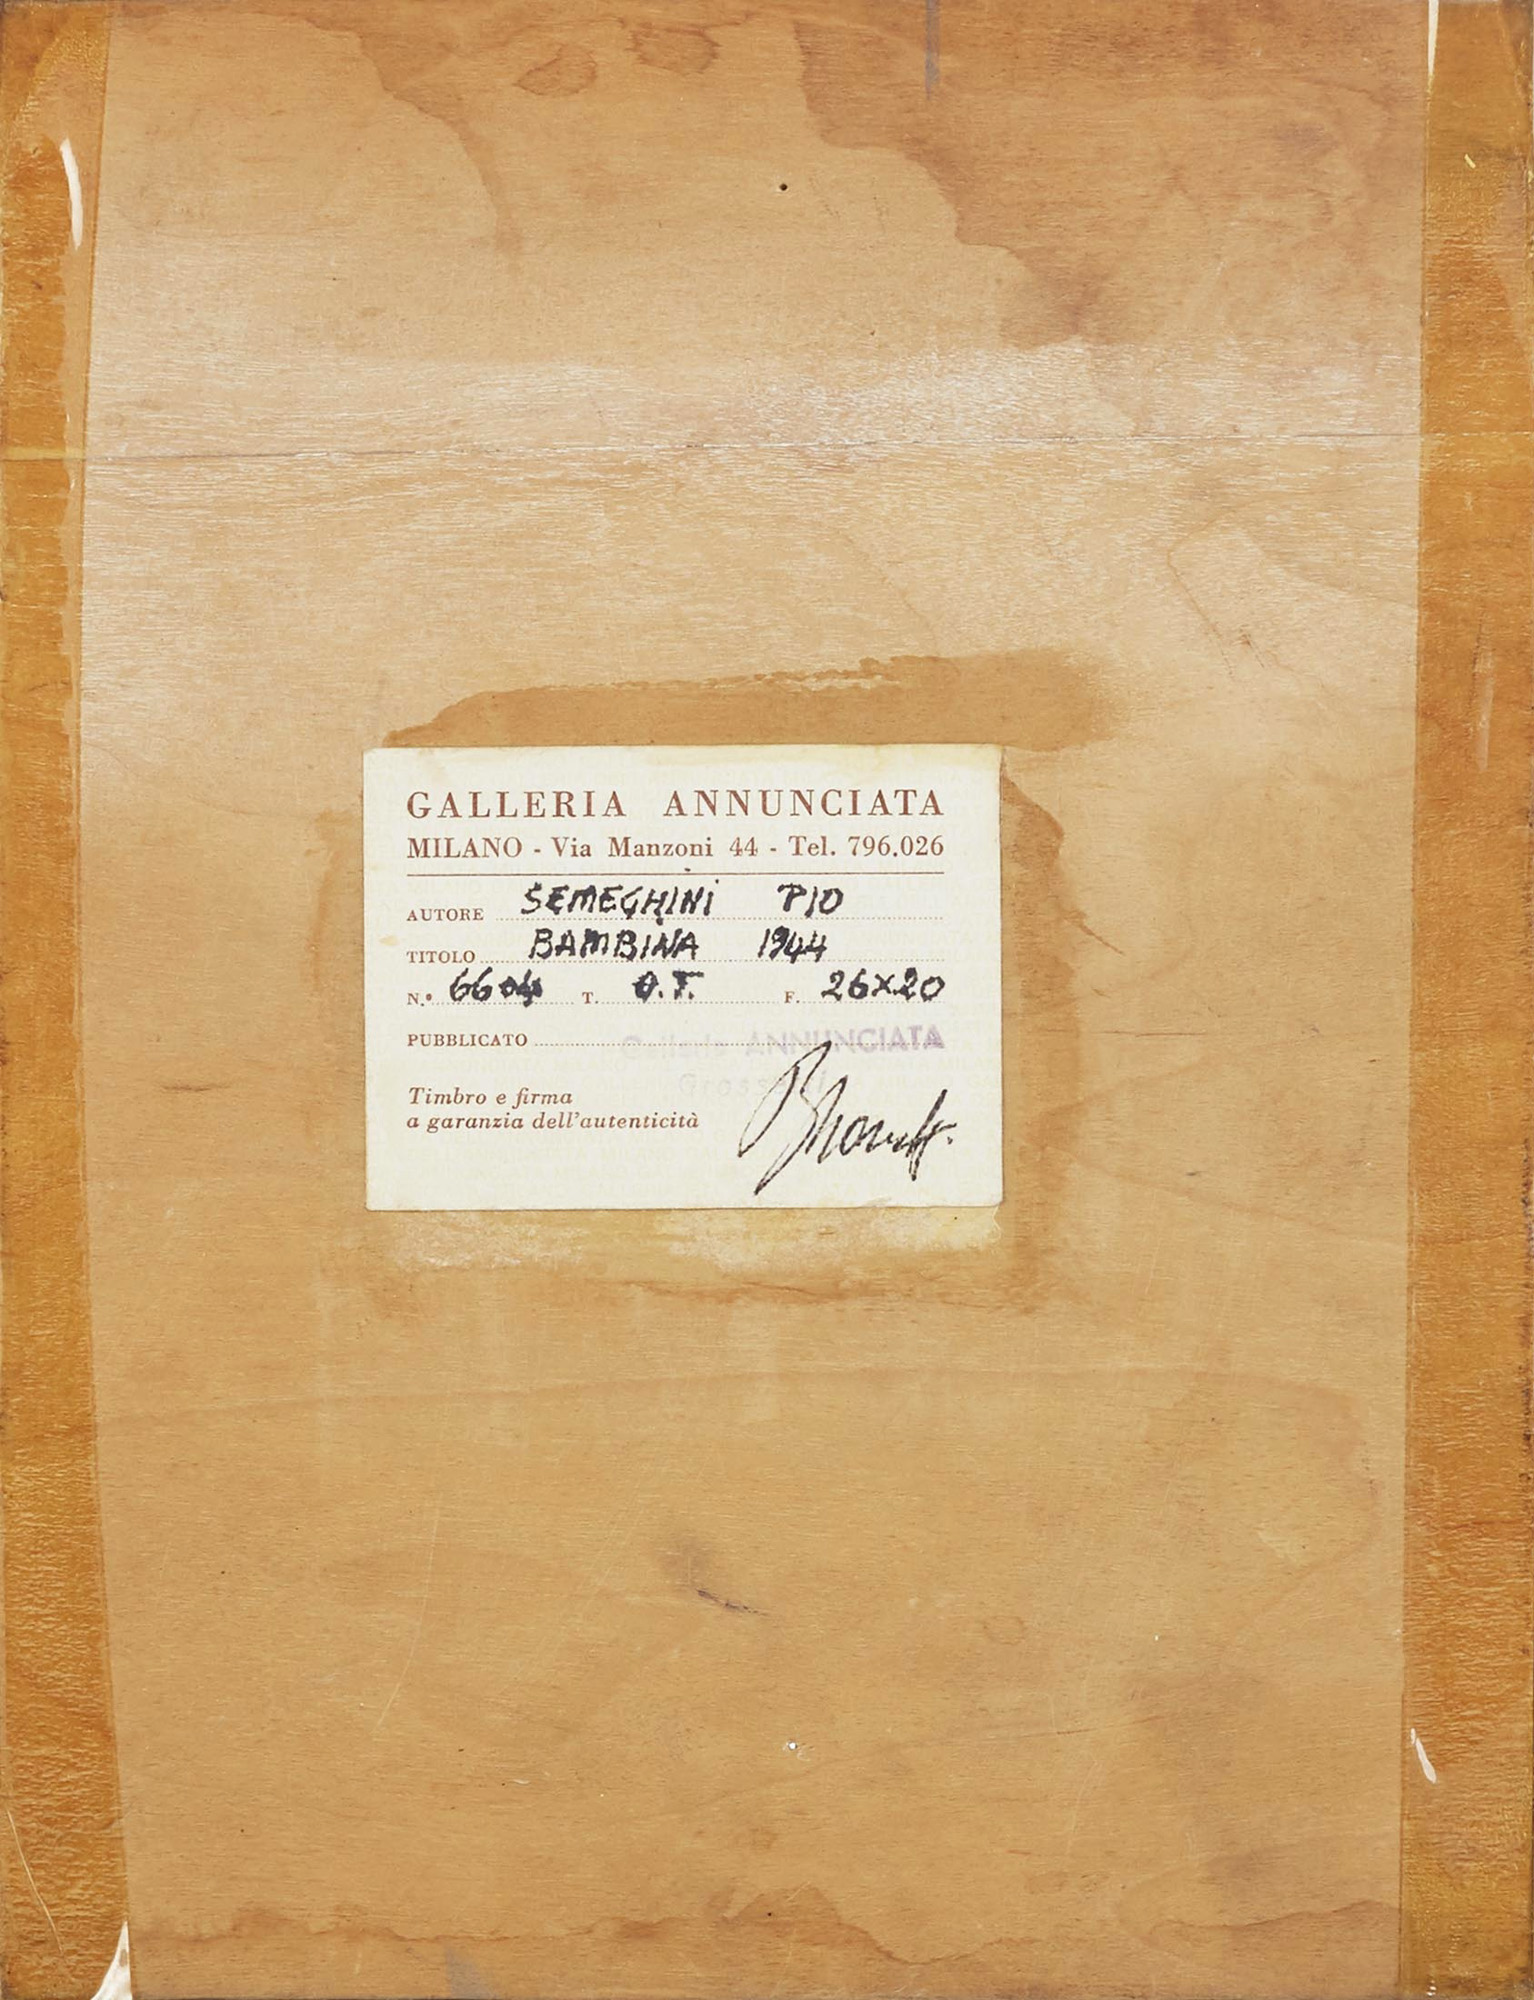 GALLERIA ANNUNCIATA
MILANO - Via Manzoni 44 - Tel. 796.026
AUTORE SEMEGHINI PIO
TITOLO BAMBINA 1944
N.° 6604 T. O.T. F. 26x20
PUBBLICATO
Galleria ANNUNCIATA
Timbro e firma
a garanzia dell'autenticità